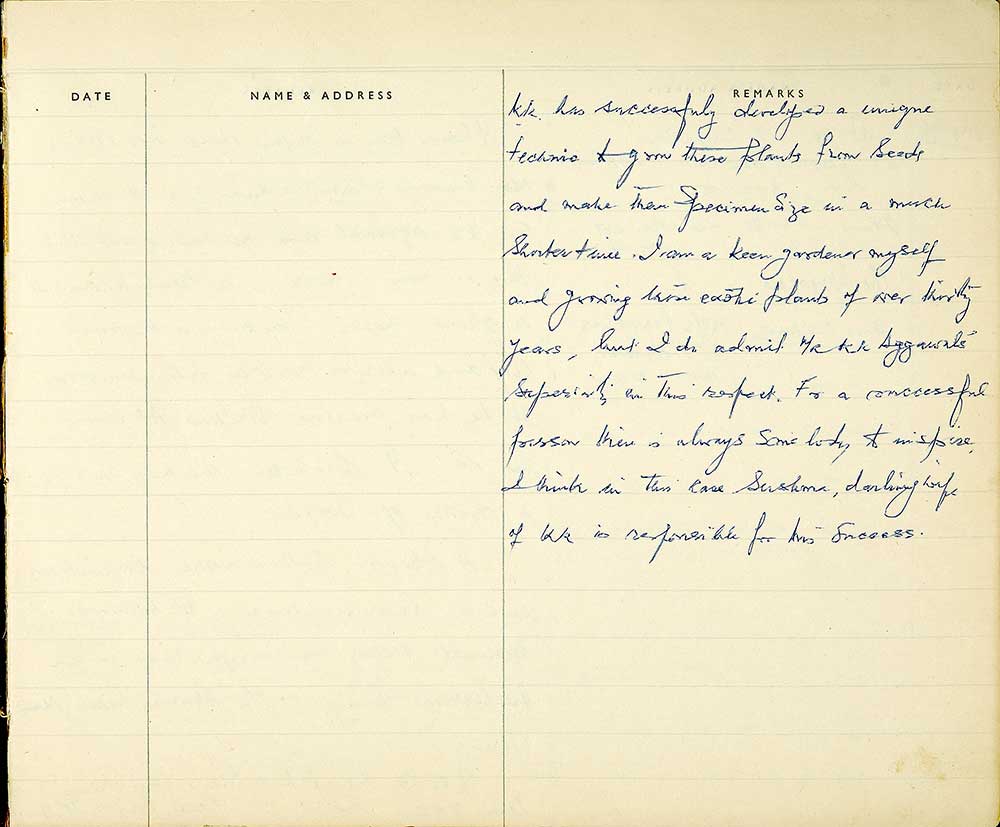 DATE NAME & ADDRESS REMARKS
KK. has successfuly developed a unique
technic to grow these plants from Seeds
and make them Specimen Size in a much
Shorter time. I am a keen gardener myself
and growing these exotic plants of over thirty
years, but I do admit Mr KK Aggarwals
Superiority in This respect. For a conccessful
person there is always Some body to inspire,
I think in This case Sushma, darling wife
of KK is responsible for his Success.